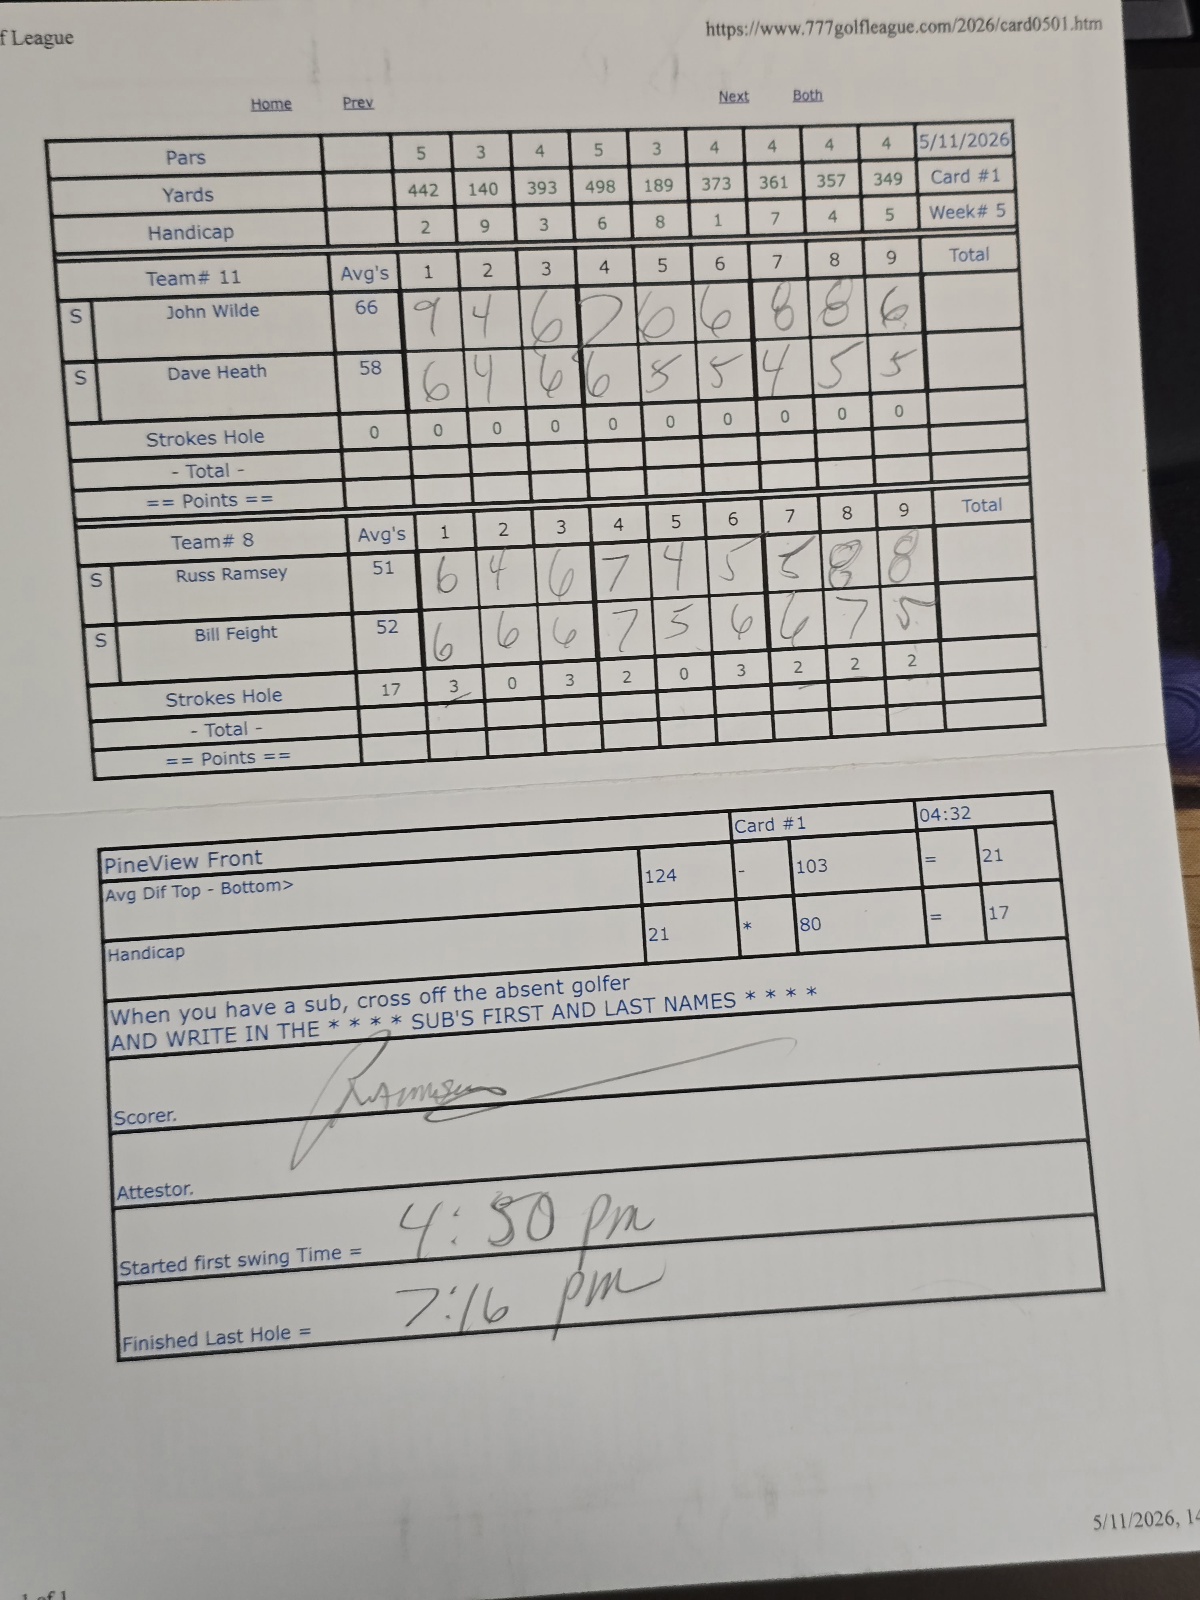 f League https://www.777golfleague.com/2026/card0501.htm
Home Prev Next Both
Pars 5 3 4 5 3 4 4 4 4 5/11/2026
Yards 442 140 393 498 189 373 361 357 349 Card #1
Handicap 2 9 3 6 8 1 7 4 5 Week# 5
Team# 11 Avg's 1 2 3 4 5 6 7 8 9 Total
S John Wilde 66 9 4 6 7 6 6 8 8 6
S Dave Heath 58 6 4 6 6 5 5 4 5 5
Strokes Hole 0 0 0 0 0 0 0 0 0 0
- Total -
== Points ==
Team# 8 Avg's 1 2 3 4 5 6 7 8 9 Total
S Russ Ramsey 51 6 4 6 7 4 5 5 8 8
S Bill Feight 52 6 6 6 7 5 6 6 7 5
Strokes Hole 17 3 0 3 2 0 3 2 2 2
- Total -
== Points ==
PineView Front Card #1 04:32
Avg Dif Top - Bottom> 124 - 103 = 21
Handicap 21 * 80 = 17
When you have a sub, cross off the absent golfer
AND WRITE IN THE * * * * SUB'S FIRST AND LAST NAMES * * * *
Scorer. Ramsey
Attestor.
Started first swing Time = 4:50 pm
Finished Last Hole = 7:16 pm
5/11/2026, 14
1 of 1